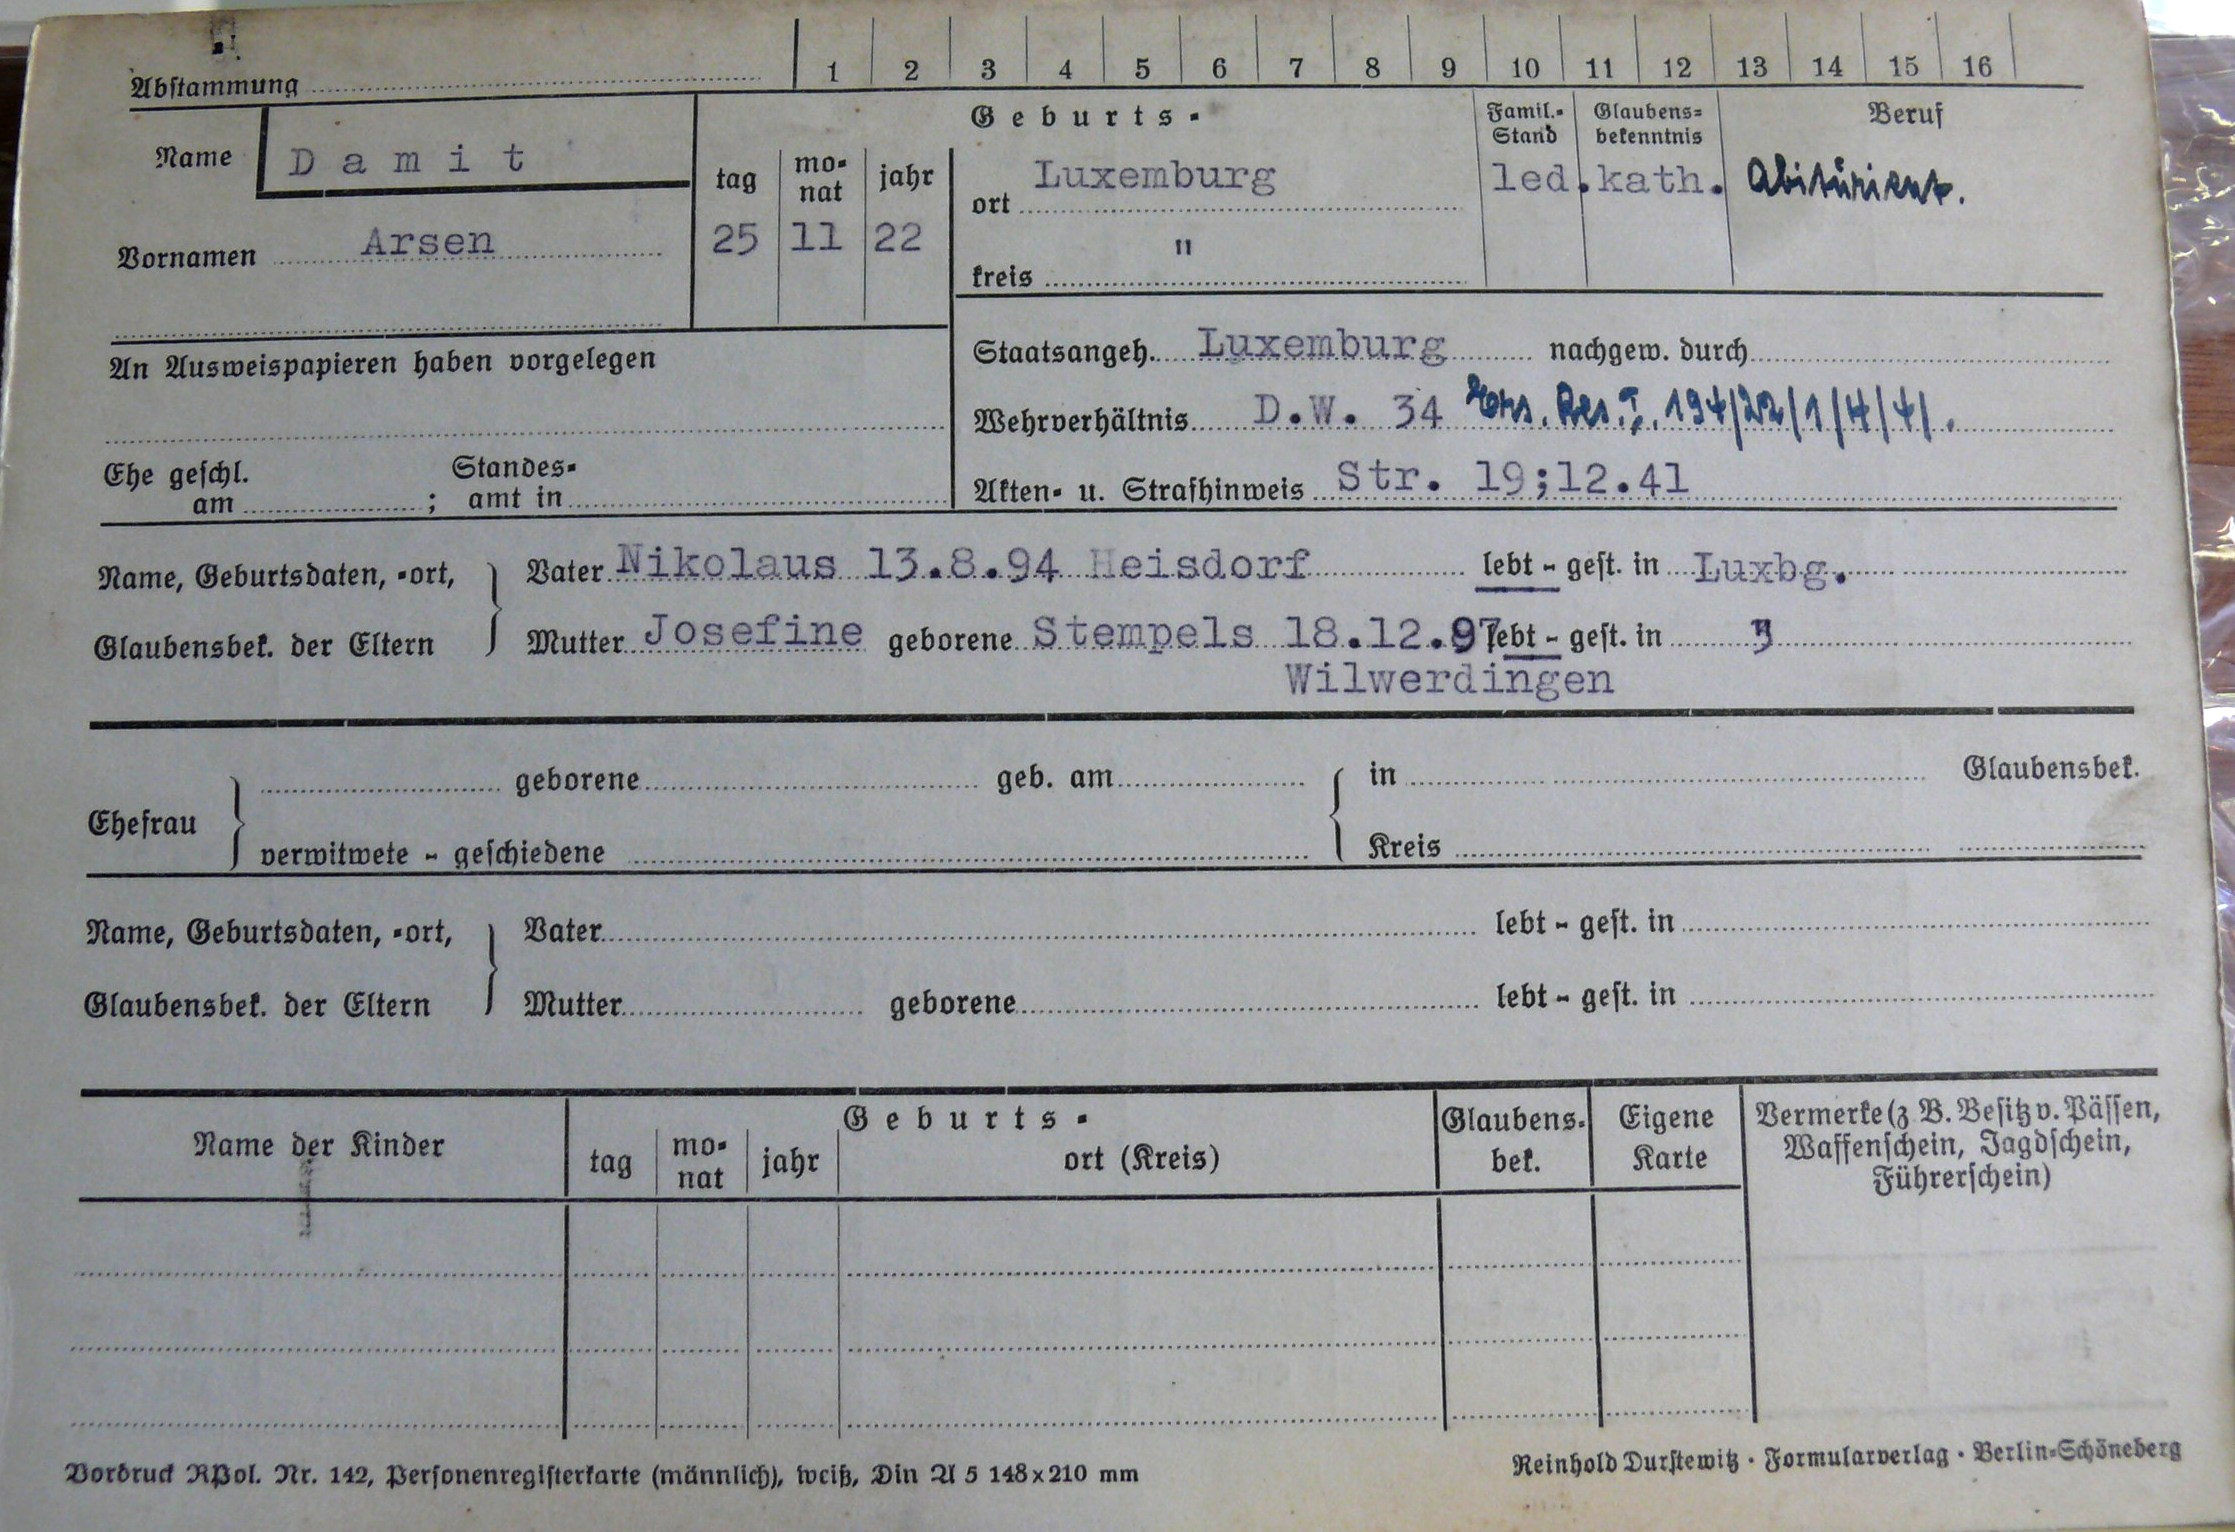 Abstammung 1 2 3 4 5 6 7 8 9 10 11 12 13 14 15 16
Name Damit
Vornamen Arsen
Geburts-
tag monat jahr
25 11 22
ort Luxemburg
kreis "
Famil.-Stand Glaubensbekenntnis Beruf
led. kath. Abiturient.
An Ausweispapieren haben vorgelegen
Staatsangeh. Luxemburg nachgew. durch
Wehrverhältnis D.W. 34 Ers. Res. I. 194/22/1/4/4/.
Ehe geschl. am ; Standesamt in
Akten- u. Strafhinweis Str. 19;12.41
Name, Geburtsdaten, -ort, Vater Nikolaus 13.8.94 Heisdorf lebt - gest. in Luxbg.
Glaubensbek. der Eltern Mutter Josefine geborene Stempels 18.12.97 lebt - gest. in "
Wilwerdingen
Ehefrau geborene geb. am in Glaubensbek.
verwitwete - geschiedene Kreis
Name, Geburtsdaten, -ort, Vater lebt - gest. in
Glaubensbek. der Eltern Mutter geborene lebt - gest. in
Name der Kinder
Geburts-
tag monat jahr ort (Kreis)
Glaubens-bek.
Eigene Karte
Vermerke (z B. Besitz v. Pässen,
Waffenschein, Jagdschein,
Führerschein)
Vordruck RPol. Nr. 142, Personenregisterkarte (männlich), weiß, Din A 5 148x210 mm
Reinhold Durstewitz · Formularverlag · Berlin-Schöneberg